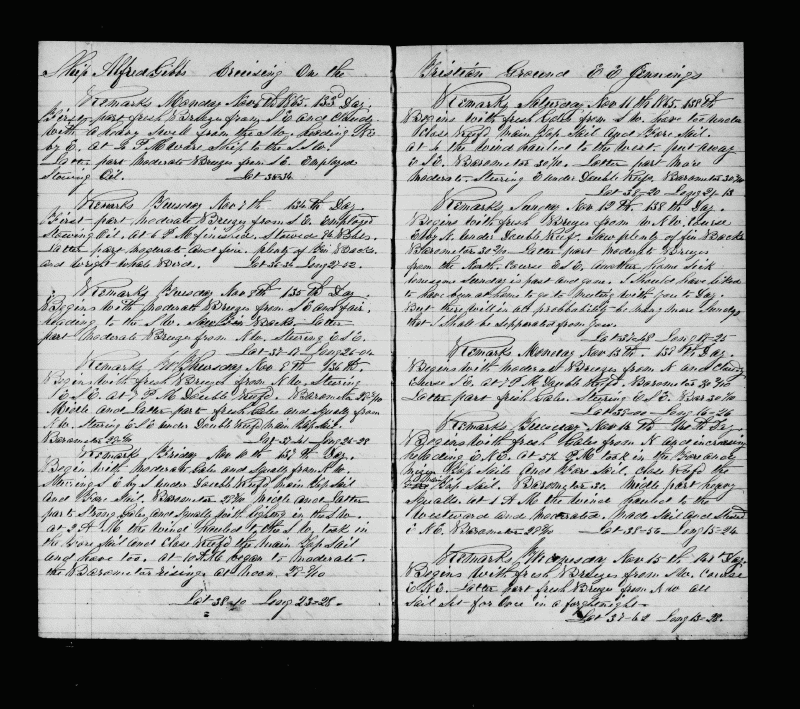 Ship Alfred Gibbs Cruising On the
Remarks Monday Nov 6th 1865. 133d Day.
First part fresh Breezes from S E and Cloudy
with a heavy Swell from the S W. heading N E
by E. at 4 P M wore Ship to the S S W.
Latter part moderate Breezes from S E. Employed
Stowing Oil. Lat 38-34
Remarks Tuesday Nov 7th 134th Day
First part moderate Breezes from S E. Employed
Stowing Oil. at 6 P M finished. Stowed Bbls.
Latter part moderate and fine. plenty of Fin Backs
and wright whale Bird. Lat 36-36 Long 27-52.
Remarks Tuesday Nov 8th 135th Day
Begins with moderate Breezes from S E and fair.
heading to the S W. Saw Fin Backs. Latter
part moderate Breezes from N W. Steering E S E.
Lat 37-17 Long 26-04
Remarks Thursday Nov 9th 136th
Begins with fresh Breezes from N W. Steering
E S E. at 7 P M Double Reefd. Barometer 29 8/10
Middle and Latter part fresh Gales and Squally from
N W. Steering E S E under Double Reefd main Top Sail.
Barometer Lat 37-41 Long 25-28
Remarks Friday Nov 10th 137th Day.
Begin with moderate Gales and Squally from N W.
Steering S E by S under Double Reefd main Top Sail
and Fore Sail. Barometer 29 8/10 midle and Latter
part Strong Gales and Squally with Lightning in the S W.
at 2 A M the wind Hauled to the S W. took in
the Fore Sail and close Reefd the Main Top Sail
and hove too. at 10 A M began to moderate.
the Barometer rising. at Noon 29 8/10
Lat 38-40 Long 23-28.
Tristian Ground E E Jennings
Remarks Saturday Nov 11th 1865. 138th
Begins with fresh Gales from S W. hove too under
Close Reefd main Top Sail and Fore Sail.
at 4 the wind hauled to the West. put away
E S E. Barometer 30 Latter part more
moderate. Steering E under Double Reefs. Barometer 30 3/10
Lat 38-20 Long 21-13
Remarks Sunday Nov 12th. 138th Day.
Begins with fresh Breezes from W N W. Course
E by N. under Double Reefs. Saw plenty of fin Backs
Barometer 30 Latter part moderate Breezes
from the North. Course E S E. another home Sick
lonesome Sunday is past and gone. I Should have liked
to have been at home to go to meeting with you to Day.
But there will in all probbability be many more Sundays
that I shall be Sepparated from you.
Lat 37-48 Long 18-25
Remarks Monday Nov 13th 139th Day.
Begins with moderate Breezes from N and Cloudy
Course S E. at 7 P M Double Reefd. Barometer 30 2/10
Latter part fresh Gales. Steering E S E. Bar 30 1/10
Lat 38-00 Long 16-26
Remarks Tuesday Nov 14th 140th Day.
Begins with fresh Gales from N and increasing
heading E N E. at 5 P M took in the Fore and
mizen Top Sails and Fore Sail. close Reefd the
Top Sail. Barometer 30. middle part heavy
Squalls at 1 A M the wind hauled to the
Westward and moderated. made Sail and Steered
E N E. Barometer 29 8/10 Lat 38-56 Long 15-24
Remarks Wednesday Nov 15th 141st Day.
Begins with fresh Breezes from S W. Course
E N E. Latter part fresh Breezes from N W all
Sail Set for Once in a forghtnight.
Lat 37-42 Long 13-28.